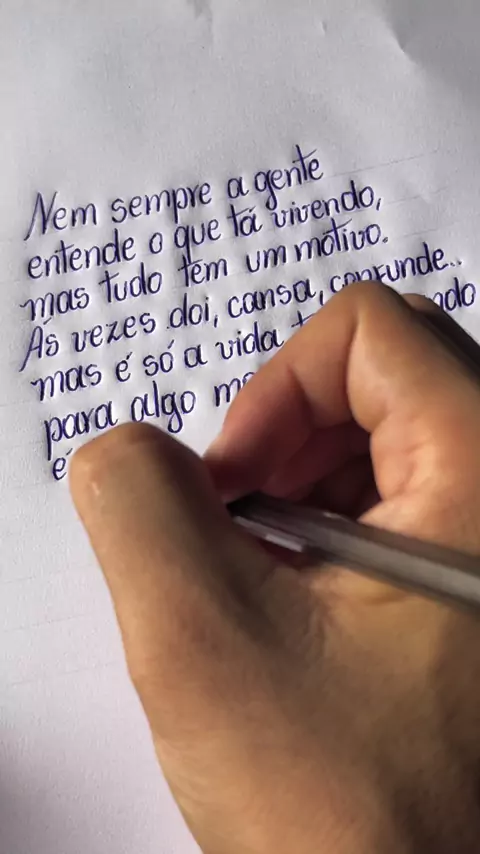 Nem sempre a gente
entende o que tá vivendo,
mas tudo tem um motivo.
Ás vezes doi, cansa, confunde..
mas é só a vida
para algo
é